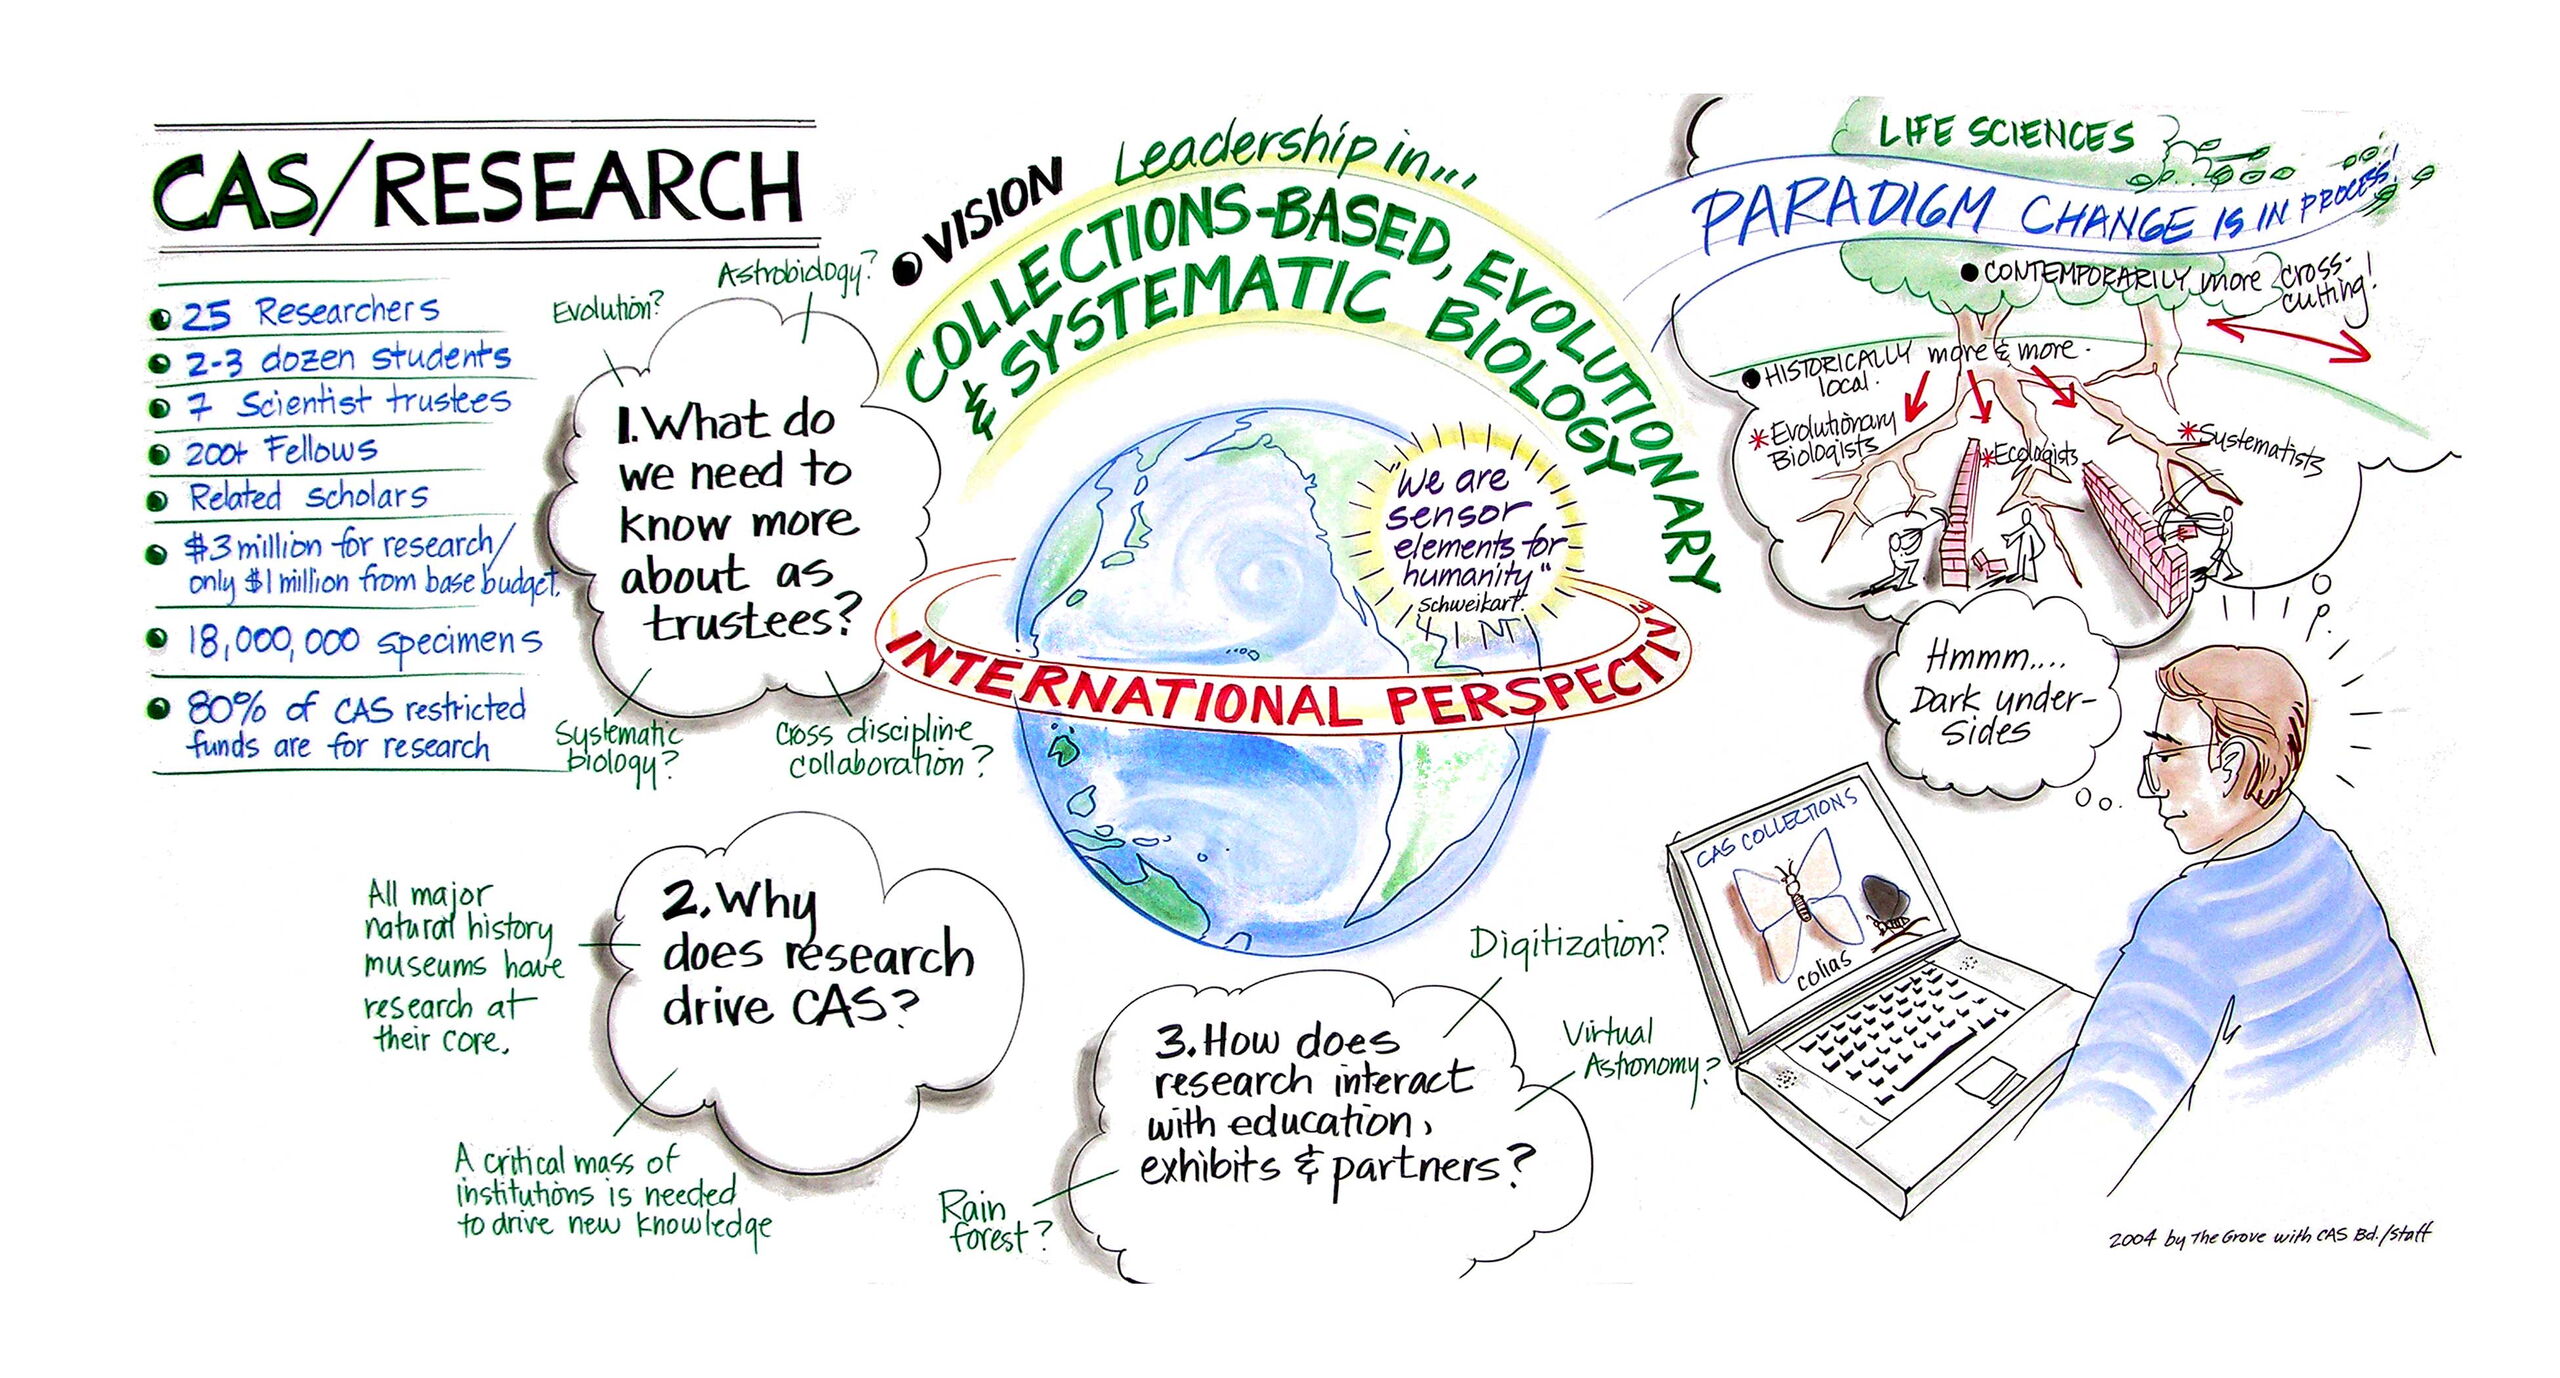 CAS/RESEARCH
25 Researchers
2-3 dozen students
7 Scientist trustees
200+ Fellows
Related scholars
$3 million for research/
only $1 million from base budget.
18,000,000 specimens
80% of CAS restricted
funds are for research
Evolution?
Astrobiology?
1. What do
we need to
know more
about as
trustees?
Systematic
biology?
Cross discipline
collaboration?
VISION
Leadership in...
COLLECTIONS-BASED, EVOLUTIONARY
& SYSTEMATIC BIOLOGY
"We are
sensor
elements for
humanity"
Schweikart.
INTERNATIONAL PERSPECTIVE
All major
natural history
museums have
research at
their core.
2. Why
does research
drive CAS?
A critical mass of
institutions is needed
to drive new knowledge
Digitization?
Virtual
Astronomy?
3. How does
research interact
with education,
exhibits & partners?
Rain
forest?
LIFE SCIENCES
PARADIGM CHANGE IS IN PROCESS!
CONTEMPORARILY more cross-
cutting!
HISTORICALLY more & more
local.
*Evolutionary
Biologists
*Ecologists
*Systematists
Hmmm....
Dark under-
sides
CAS COLLECTIONS
colias
2004 by The Grove with CAS Bd./Staff